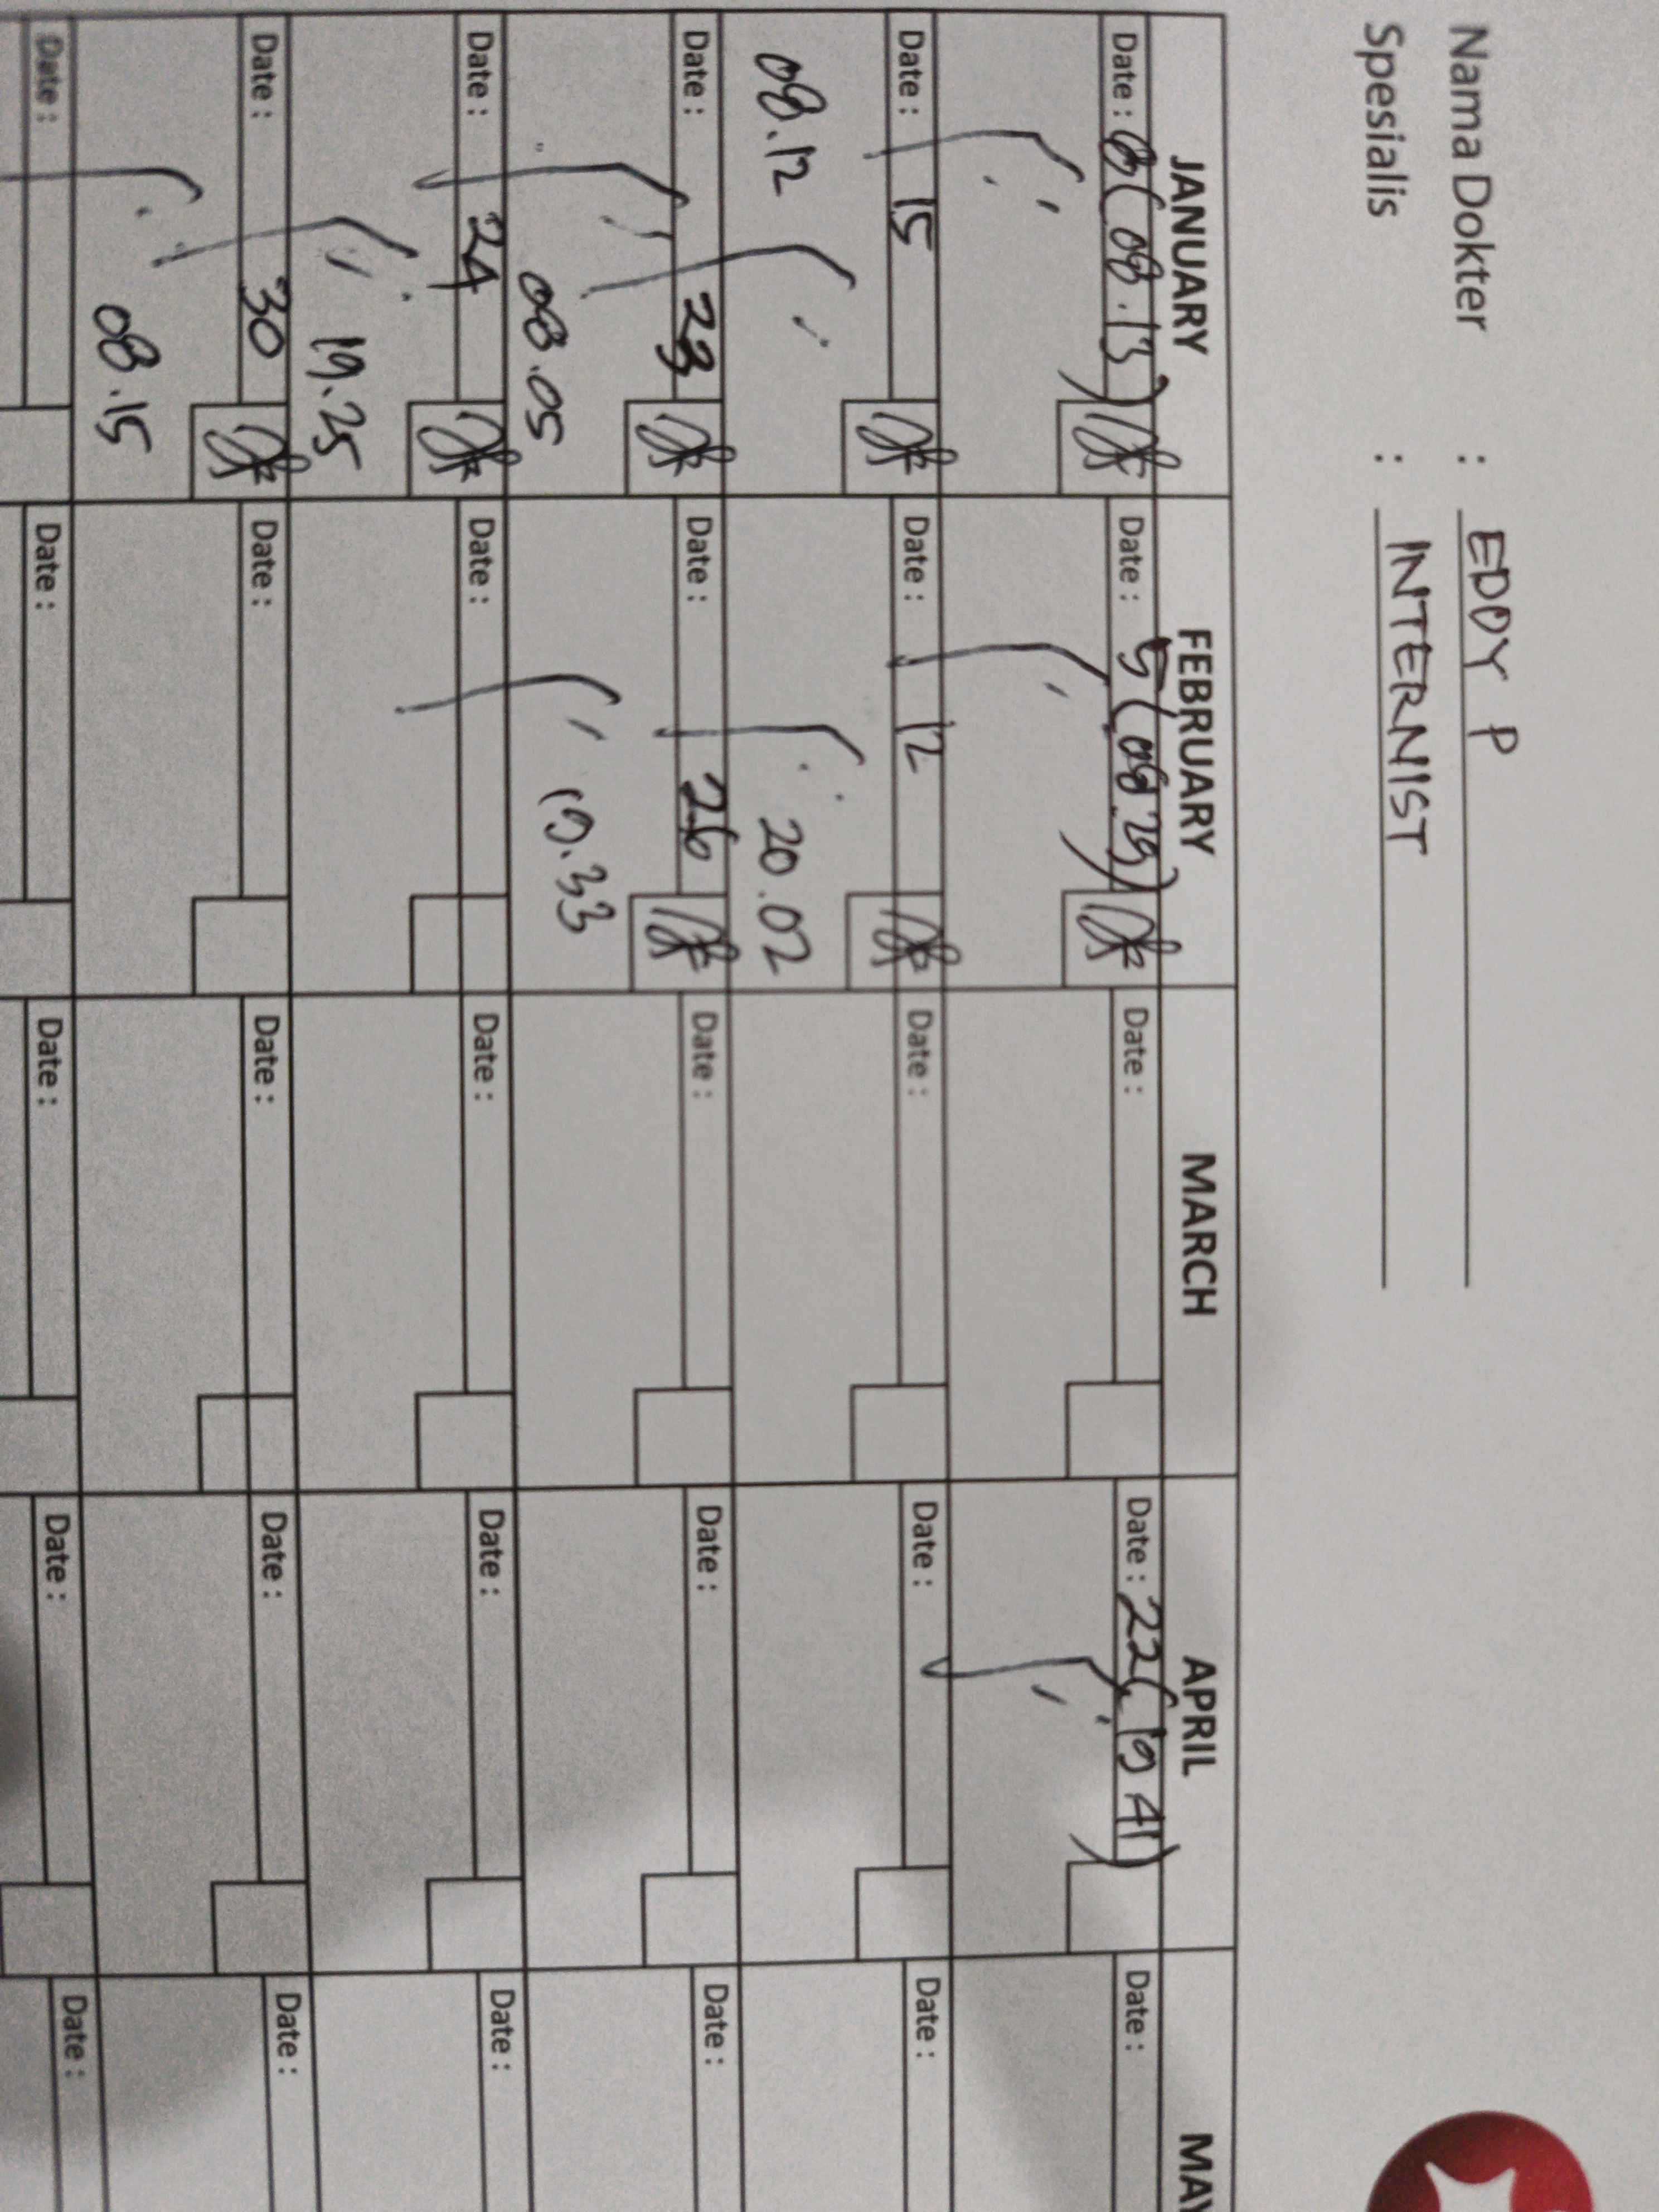 Nama Dokter : EDDY P
Spesialis : INTERNIST
JANUARY FEBRUARY MARCH APRIL MAY
Date : 8 (08.13) Date : 5 (08.29) Date : Date : 22 (19 41) Date :
Date : 15 Date : 12 Date : Date : Date :
08.12 20.02
Date : 23 Date : 26 Date : Date : Date :
08.05 19.33
Date : 24 Date : Date : Date : Date :
19.25
Date : 30 Date : Date : Date : Date :
08.15
Date : Date : Date : Date : Date :